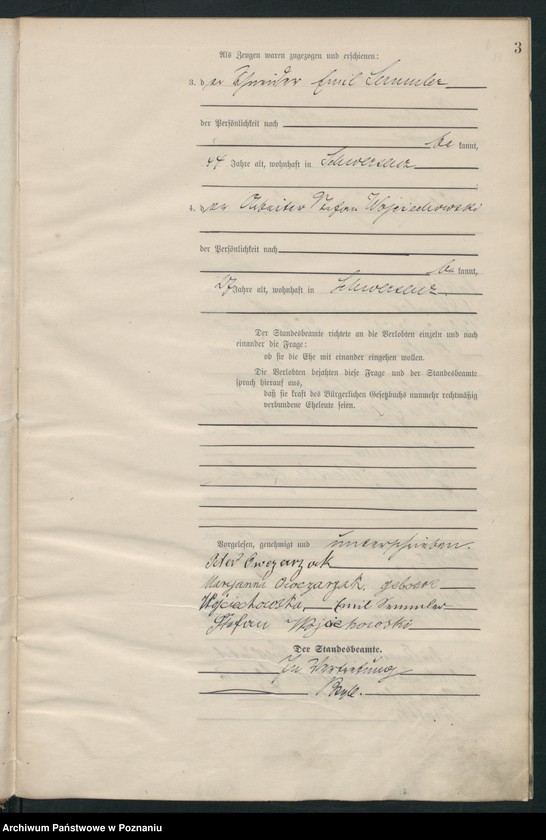 3
Als Zeugen waren zugezogen und erschienen:
3. der Schneider Emil Semmler
der Persönlichkeit nach
be kannt,
44 Jahre alt, wohnhaft in Schwersenz
4. der Arbeiter Stefan Wojciechowski
der Persönlichkeit nach
be kannt,
27 Jahre alt, wohnhaft in Schwersenz
Der Standesbeamte richtete an die Verlobten einzeln und nach
einander die Frage:
ob sie die Ehe mit einander eingehen wollen.
Die Verlobten bejahten diese Frage und der Standesbeamte
sprach hierauf aus,
daß sie kraft des Bürgerlichen Gesetzbuchs nunmehr rechtmäßig
verbundene Eheleute seien.
Vorgelesen, genehmigt und unterschrieben.
Owczarzak
Maryanna Owczarzak, geborene
Wojciechowska, Emil Semmler
Stefan Wojciechowski
Der Standesbeamte.
In Vertretung
Archiwum Państwowe w Poznaniu